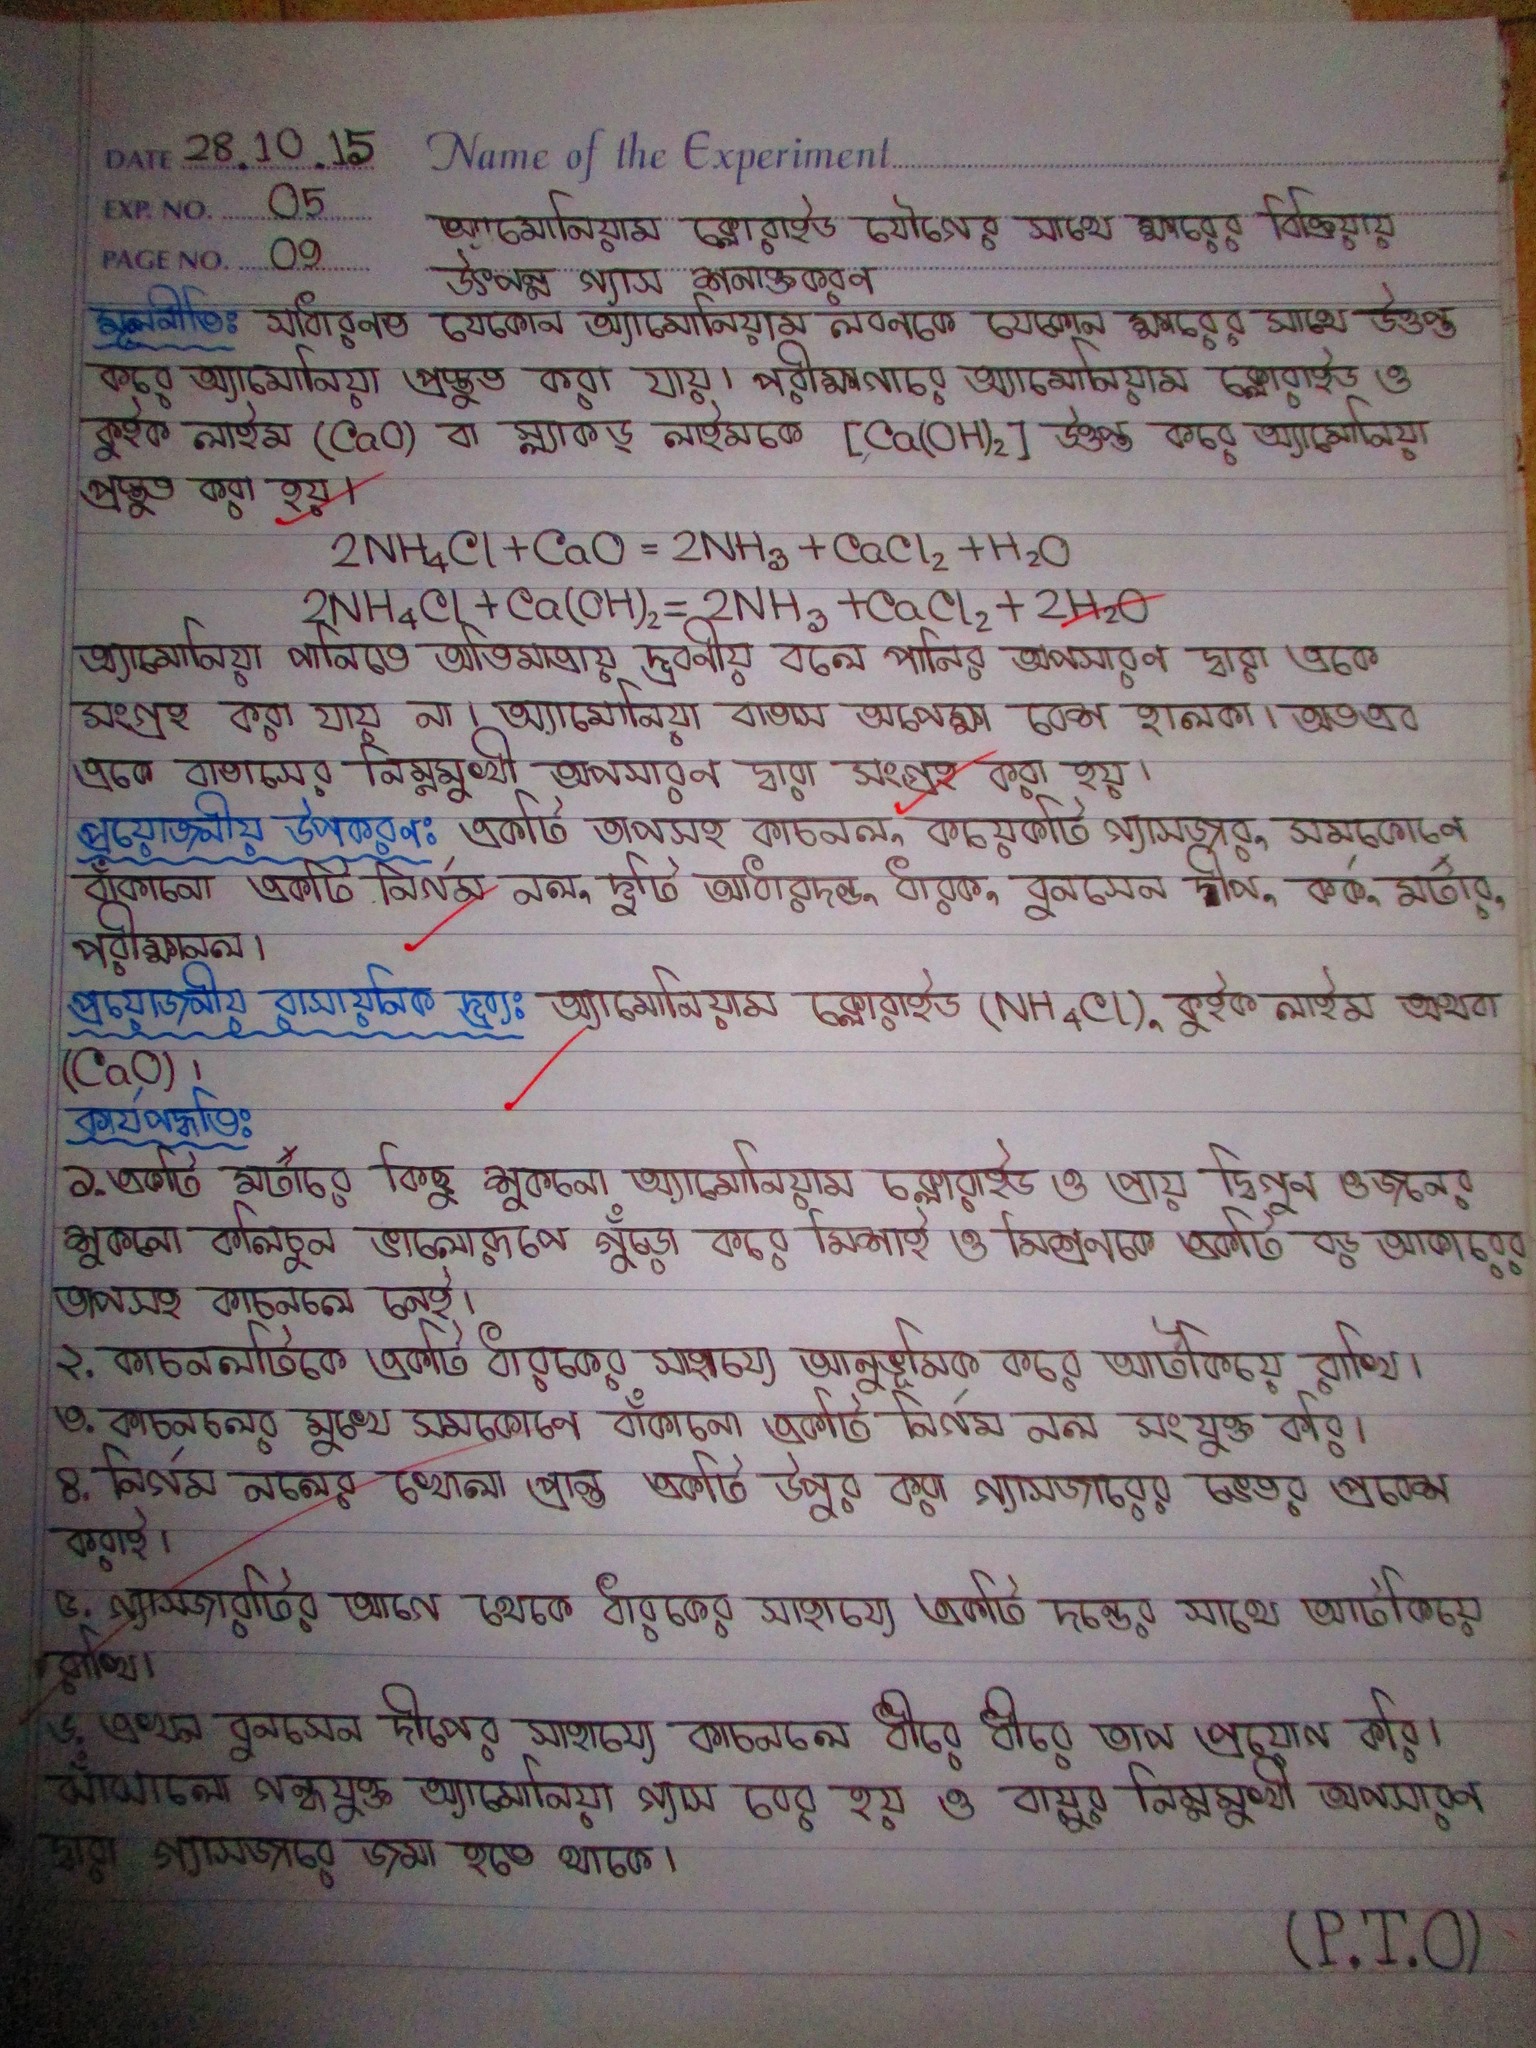 DATE 28.10.15 Name of the Experiment
EXP. NO. 05
অ্যামোনিয়াম ক্লোরাইড যৌগের সাথে ক্ষারের বিক্রিয়ায়
PAGE NO. 09
উৎপন্ন গ্যাস শনাক্তকরণ
মূলনীতিঃ সাধারণত যেকোন অ্যামোনিয়াম লবনকে যেকোন ক্ষারের সাথে উত্তপ্ত
করে অ্যামোনিয়া প্রস্তুত করা যায়। পরীক্ষাগারে অ্যামোনিয়াম ক্লোরাইড ও
কুইক লাইম (CaO) বা স্ল্যাকড্ লাইমকে [Ca(OH)₂] উত্তপ্ত করে অ্যামোনিয়া
প্রস্তুত করা হয়।
2NH₄Cl + CaO = 2NH₃ + CaCl₂ + H₂O
2NH₄Cl + Ca(OH)₂ = 2NH₃ + CaCl₂ + 2H₂O
অ্যামোনিয়া পানিতে অতিমাত্রায় দ্রবনীয় বলে পানির অপসারণ দ্বারা একে
সংগ্রহ করা যায় না। অ্যামোনিয়া বাতাস অপেক্ষা বেশ হালকা। অতএব
একে বাতাসের নিম্নমুখী অপসারণ দ্বারা সংগ্রহ করা হয়।
প্রয়োজনীয় উপকরণঃ একটি তাপসহ কাচনল, কয়েকটি গ্যাসজার, সমকোণে
বাঁকানো একটি নির্গম নল, দুটি আধারদন্ড, ধারক, বুনসেন দীপ, কর্ক, মর্টার,
পরীক্ষানল।
প্রয়োজনীয় রাসায়নিক দ্রব্যঃ অ্যামোনিয়াম ক্লোরাইড (NH₄Cl), কুইক লাইম অথবা
(CaO)।
কার্যপদ্ধতিঃ
১. একটি মর্টারে কিছু শুকনো অ্যামোনিয়াম ক্লোরাইড ও প্রায় দ্বিগুন ওজনের
শুকনো কলিচুন ভালোরূপে গুঁড়ো করে মিশাই ও মিশ্রণকে একটি বড় আকারের
তাপসহ কাচনলে নেই।
২. কাচনলটিকে একটি ধারকের সাহায্যে আনুভূমিক করে আটকিয়ে রাখি।
৩. কাচনলের মুখে সমকোণে বাঁকানো একটি নির্গম নল সংযুক্ত করি।
৪. নির্গম নলের খোলা প্রান্ত একটি উপুর করা গ্যাসজারের ভেতর প্রবেশ
করাই।
৫. গ্যাসজারটির আগে থেকে ধারকের সাহায্যে একটি দন্ডের সাথে আটকিয়ে
রাখি।
৬. এখন বুনসেন দীপের সাহায্যে কাচনলে ধীরে ধীরে তাপ প্রয়োগ করি।
ঝাঁঝালো গন্ধযুক্ত অ্যামোনিয়া গ্যাস বের হয় ও বায়ুর নিম্নমুখী অপসারণ
দ্বারা গ্যাসজারে জমা হতে থাকে।
(P.T.O)